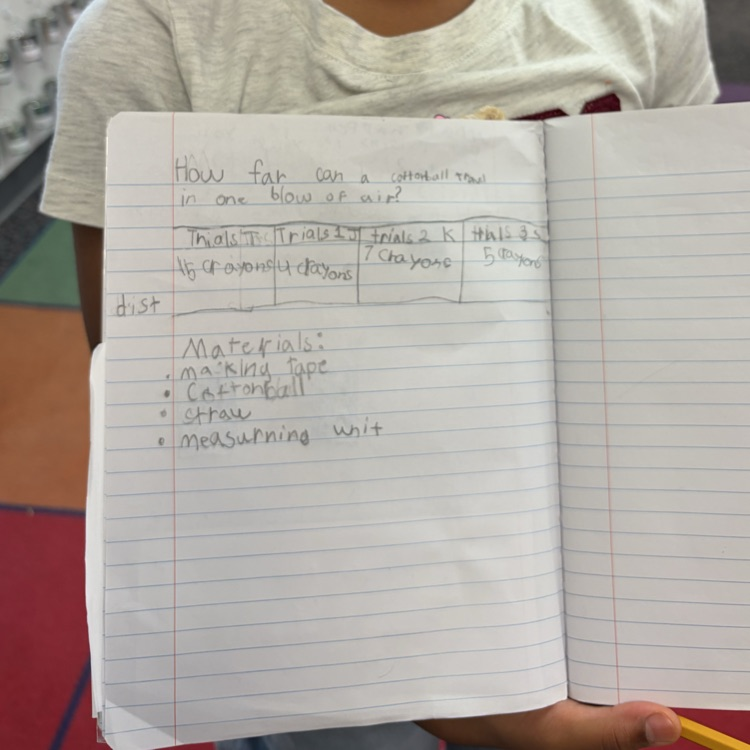 How far can a cottonball travel
in one blow of air?
Trials Trials 1 J trials 2 K trials 3 S
15 crayons 4 crayons 7 crayons 5 crayons
dist
Materials:
• making tape
• Cottonball
• straw
• measurning unit